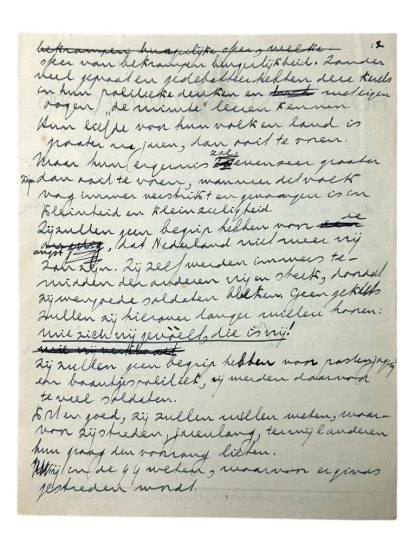 bekrompen burgerlijke sfeer, welke 12
sfeer van bekrompen burgerlijkheid. Zonder
veel gepraat en gedebatteer hebben deze kerels
in hun politieke denken en met eigen
oogen, "de ruimte" leeren kennen.
Hun liefde voor hun volk en land is
grooter nu, dan ooit te voren.
Maar hun ergernis zal evenzeer grooter
zijn dan ooit te voren, wanneer dit volk
nog immer verstrikt en gevangen is in
kleinheid en kleinzieligheid.
Zij zullen geen begrip hebben voor de
angst, dat Nederland niet meer vrij
zou zijn. Zij zelf werden immers te-
midden der anderen vrij en sterk, doordat
zij werden goede soldaten. Geen geklets
zullen zij hierover langer willen hooren:
wie zich vrij gevoelt, die is vrij!
Zij zullen geen begrip hebben voor
een baantjespolitiek, zij werden daarvoor
te veel soldaten.
Erst en goed, zij zullen willen weten, waar-
voor zij streden, jarenlang, terwijl anderen
hun graag den voorrang lieten.
Wij en de 44 weten, waarvoor er
gestreden wordt.